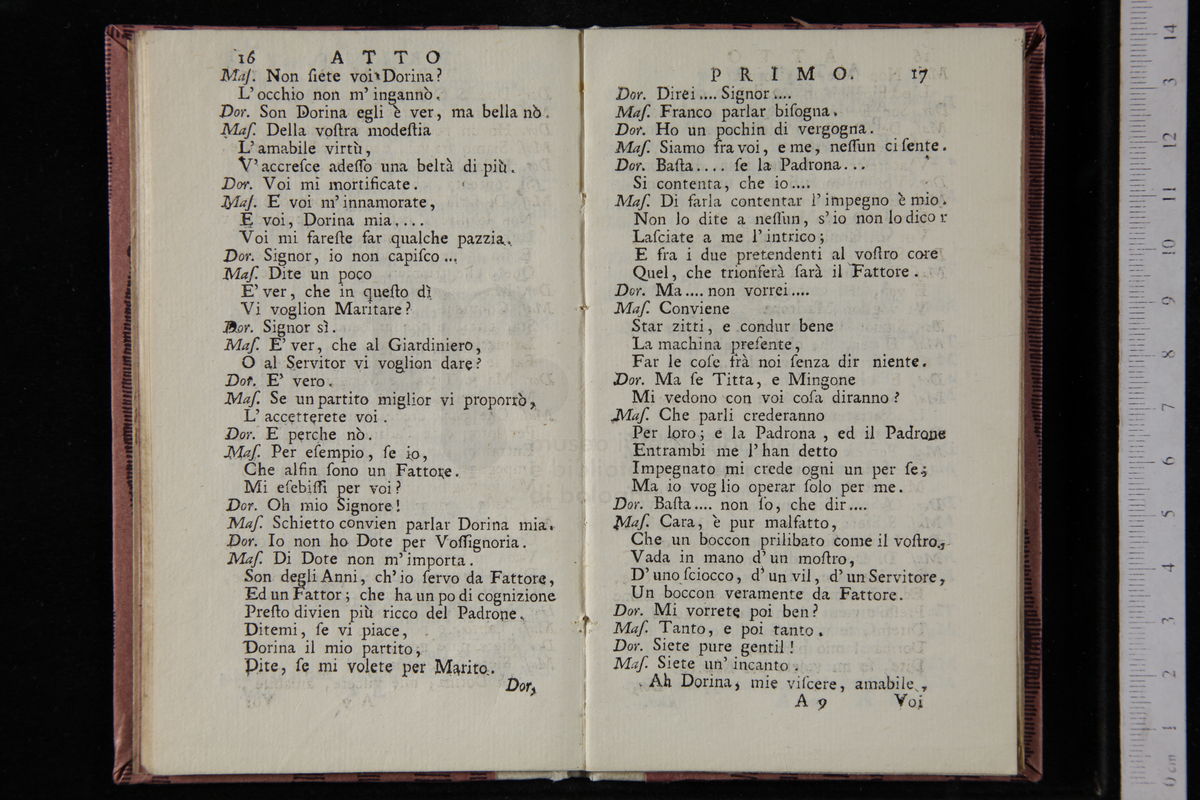 16 ATTO
Maſ. Non ſiete voi Dorina?
L'occhio non m'ingannò.
Dor. Son Dorina egli è ver, ma bella nò.
Maſ. Della voſtra modeſtia
L'amabile virtù,
V'accreſce adeſſo una beltà di più.
Dor. Voi mi mortificate.
Maſ. E voi m'innamorate,
E voi, Dorina mia....
Voi mi fareſte far qualche pazzia.
Dor. Signor, io non capiſco...
Maſ. Dite un poco
E'ver, che in queſto dì
Vi voglion Maritare?
Dor. Signor sì.
Maſ. E'ver, che al Giardiniero,
O al Servitor vi voglion dare?
Dor. E' vero.
Maſ. Se un partito miglior vi proporrò,
L'accetterete voi.
Dor. E perche nò.
Maſ. Per eſempio, ſe io,
Che alfin ſono un Fattore.
Mi eſebiſſi per voi?
Dor. Oh mio Signore!
Maſ. Schietto convien parlar Dorina mia.
Dor. Io non ho Dote per Voſſignoria.
Maſ. Di Dote non m'importa.
Son degli Anni, ch'io ſervo da Fattore,
Ed un Fattor; che ha un po di cognizione
Preſto divien più ricco del Padrone.
Ditemi, ſe vi piace,
Dorina il mio partito,
Dite, ſe mi volete per Marito.
Dor,
PRIMO. 17
Dor. Direi.... Signor....
Maſ. Franco parlar biſogna.
Dor. Ho un pochin di vergogna.
Maſ. Siamo fra voi, e me, neſſun ci ſente.
Dor. Baſta.... ſe la Padrona...
Si contenta, che io....
Maſ. Di farla contentar l'impegno è mio.
Non lo dite a neſſun, s'io non lo dico r
Laſciate a me l'intrico;
E fra i due pretendenti al voſtro core
Quel, che trionferà ſarà il Fattore.
Dor. Ma.... non vorrei....
Maſ. Conviene
Star zitti, e condur bene
La machina preſente,
Far le coſe frà noi ſenza dir niente.
Dor. Ma ſe Titta, e Mingone
Mi vedono con voi coſa diranno?
Maſ. Che parli crederanno
Per loro; e la Padrona, ed il Padrone
Entrambi me l'han detto
Impegnato mi crede ogni un per ſe;
Ma io voglio operar ſolo per me.
Dor. Baſta.... non ſo, che dir....
Maſ. Cara, è pur malfatto,
Che un boccon prilibato come il voſtro,
Vada in mano d'un moſtro,
D'uno ſciocco, d'un vil, d'un Servitore,
Un boccon veramente da Fattore.
Dor. Mi vorrete poi ben?
Maſ. Tanto, e poi tanto.
Dor. Siete pure gentil!
Maſ. Siete un' incanto.
Ah Dorina, mie viſcere, amabile,
A 9 Voi